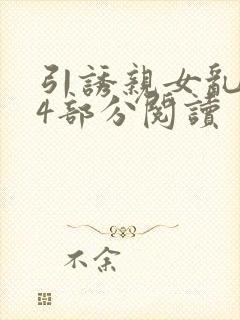 引誘親女亂
4部分閱讀
不余